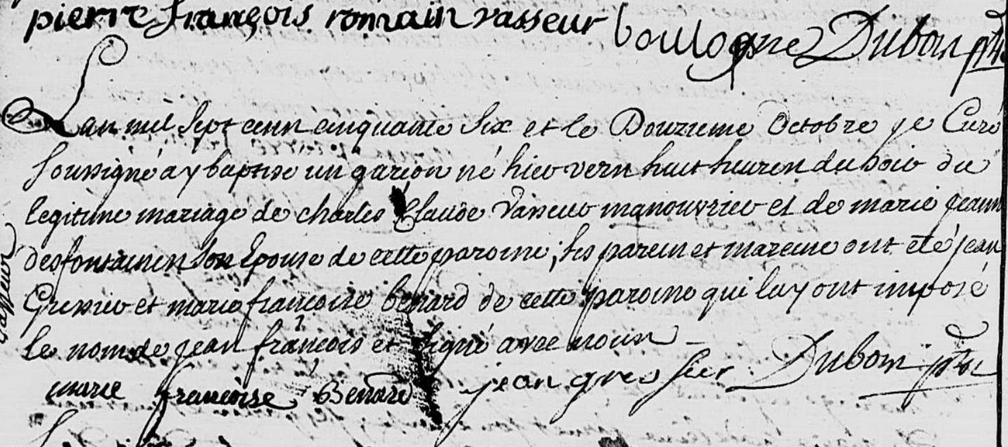 pierre françois romain vasseur boulogne Duboin ptre
Lan mil Sept cent cinquante Six et le Douzieme Octobre je Curé
Soussigné ay baptisé un garçon né hier vers huit heures du soir du
legitime mariage de charles Claude Vasseur manouvrier et de marie jeanne
desfontaines son Epouse de cette paroisse, ses parein et mareine ont eté jean
Gressier et marie françoise benard de cette paroisse qui luy ont imposé
le nom de jean françois et signé avec nous
marie francoise Benard jean gressier Duboin ptre
vasseur